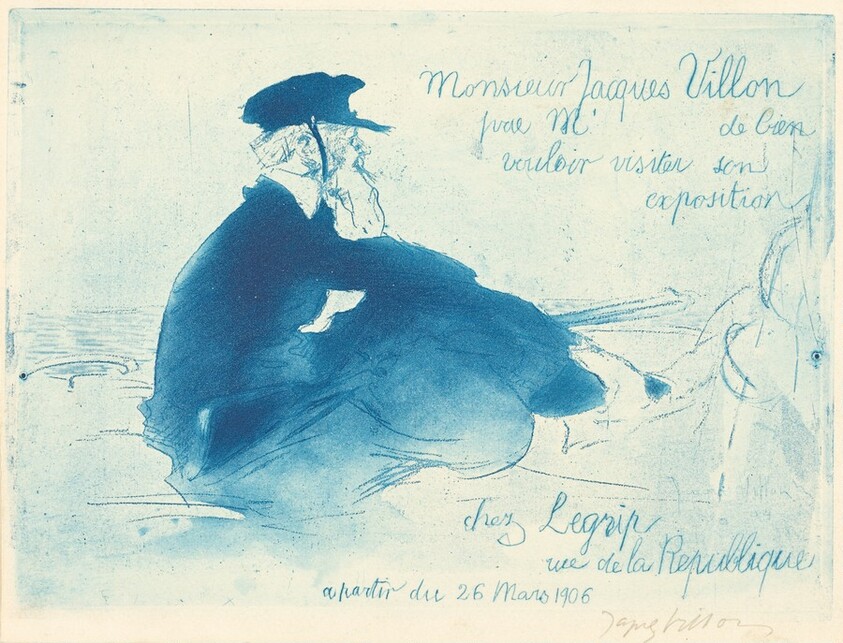 Monsieur Jacques Villon
prie M' de bien
vouloir visiter son
exposition
chez Legrip
rue de la Republique
a partir du 26 Mars 1906
Jacques Villon